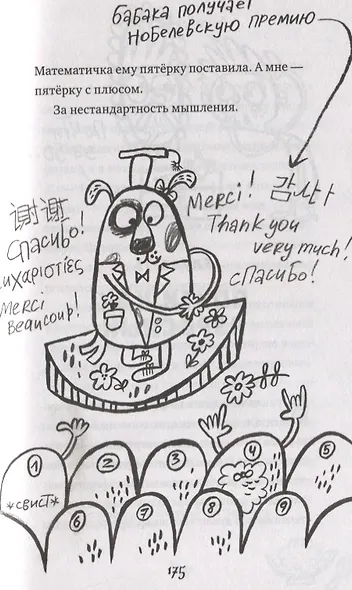 бабака получает
Нобелевскую премию
Математичка ему пятёрку поставила. А мне —
пятёрку с плюсом.
За нестандартность мышления.
谢谢
Спасибо!
ευχαριστίες
Merci
Beaucoup!
Merci! 감사
Thank you
very much!
спасибо!
1
2
3
4
5
*свист*
6
7
8
9
175